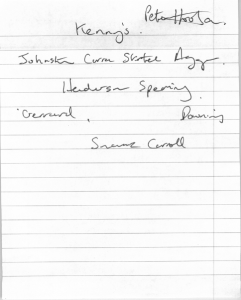 Peter Hooton.
Kenny's.
Johnston Curran Skirtel Agger.
Henderson Spearing
Gerrard. Downing
Suarez Carroll